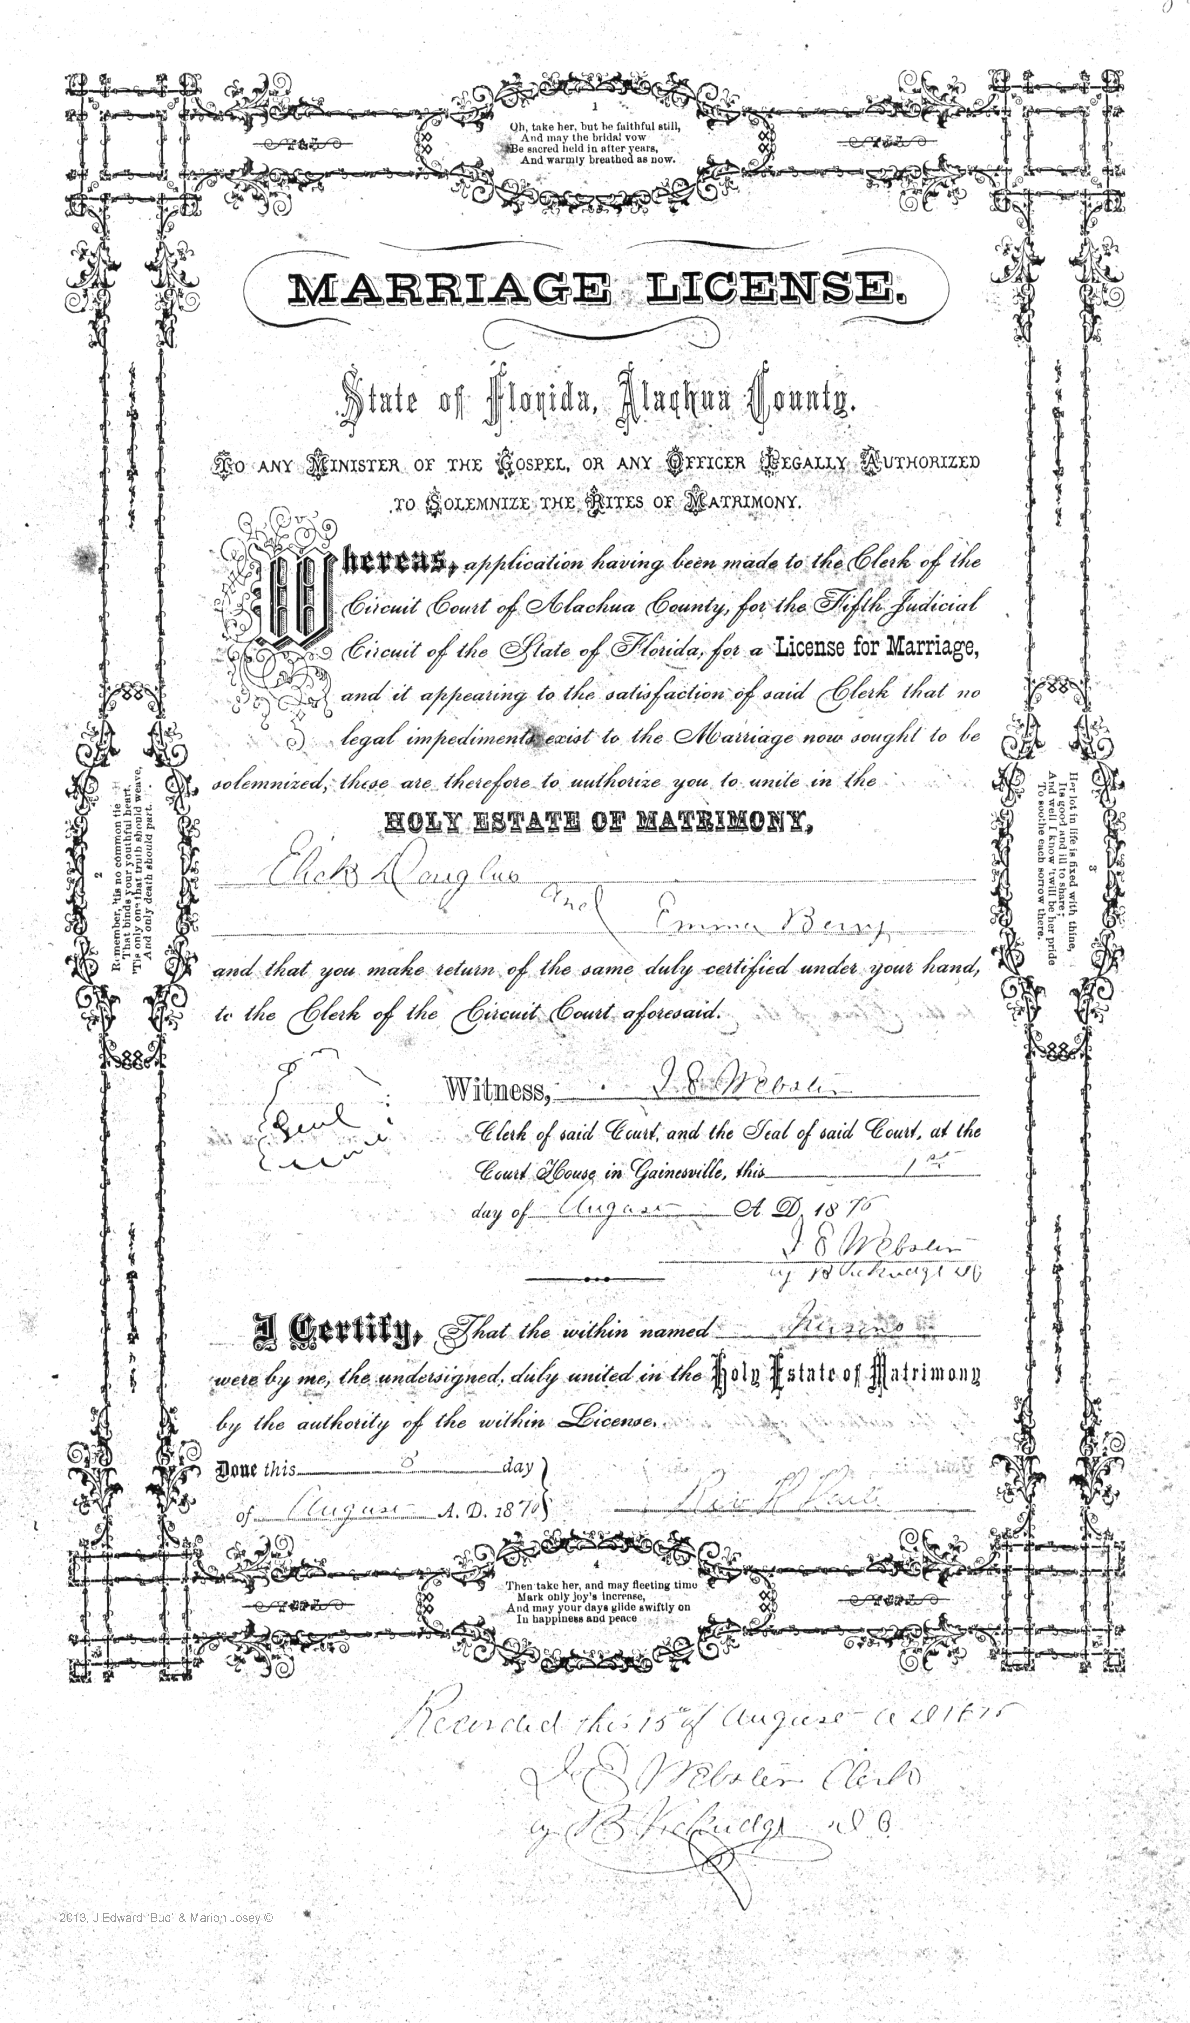 1
Oh, take her, but be faithful still,
And may the bridal vow
Be sacred held in after years,
And warmly breathed as now.
MARRIAGE LICENSE.
State of Florida, Alachua County.
TO ANY MINISTER OF THE GOSPEL, OR ANY OFFICER LEGALLY AUTHORIZED
TO SOLEMNIZE THE RITES OF MATRIMONY.
Whereas, application having been made to the Clerk of the
Circuit Court of Alachua County, for the Fifth Judicial
Circuit of the State of Florida, for a License for Marriage,
and it appearing to the satisfaction of said Clerk that no
legal impediments exist to the Marriage now sought to be
solemnized, these are therefore to authorize you to unite in the
HOLY ESTATE OF MATRIMONY,
Elick Douglas
and Emma Berry
and that you make return of the same duly certified under your hand,
to the Clerk of the Circuit Court aforesaid.
2
Remember, 'tis no common tie
That binds your youthful heart,
'Tis only one that truth should weave,
And only death should part.
3
Her lot in life is fixed with thine,
Its good and ill to share;
And well I know 'twill be her pride
To soothe each sorrow there.
Seal
Witness, J E Webster
Clerk of said Court, and the Seal of said Court, at the
Court House in Gainesville, this 1st
day of August A. D. 1875
J E Webster
by
I Certify, That the within named
were by me, the undersigned, duly united in the Holy Estate of Matrimony
by the authority of the within License.
Done this 8 day
of August A. D. 187
Rev
4
Then take her, and may fleeting time
Mark only joy's increase,
And may your days glide swiftly on
In happiness and peace
Recorded this 15th of August A D 1875
J E Webster Clerk
by D C
2013, J Edward 'Bud' & Marion Josey ©